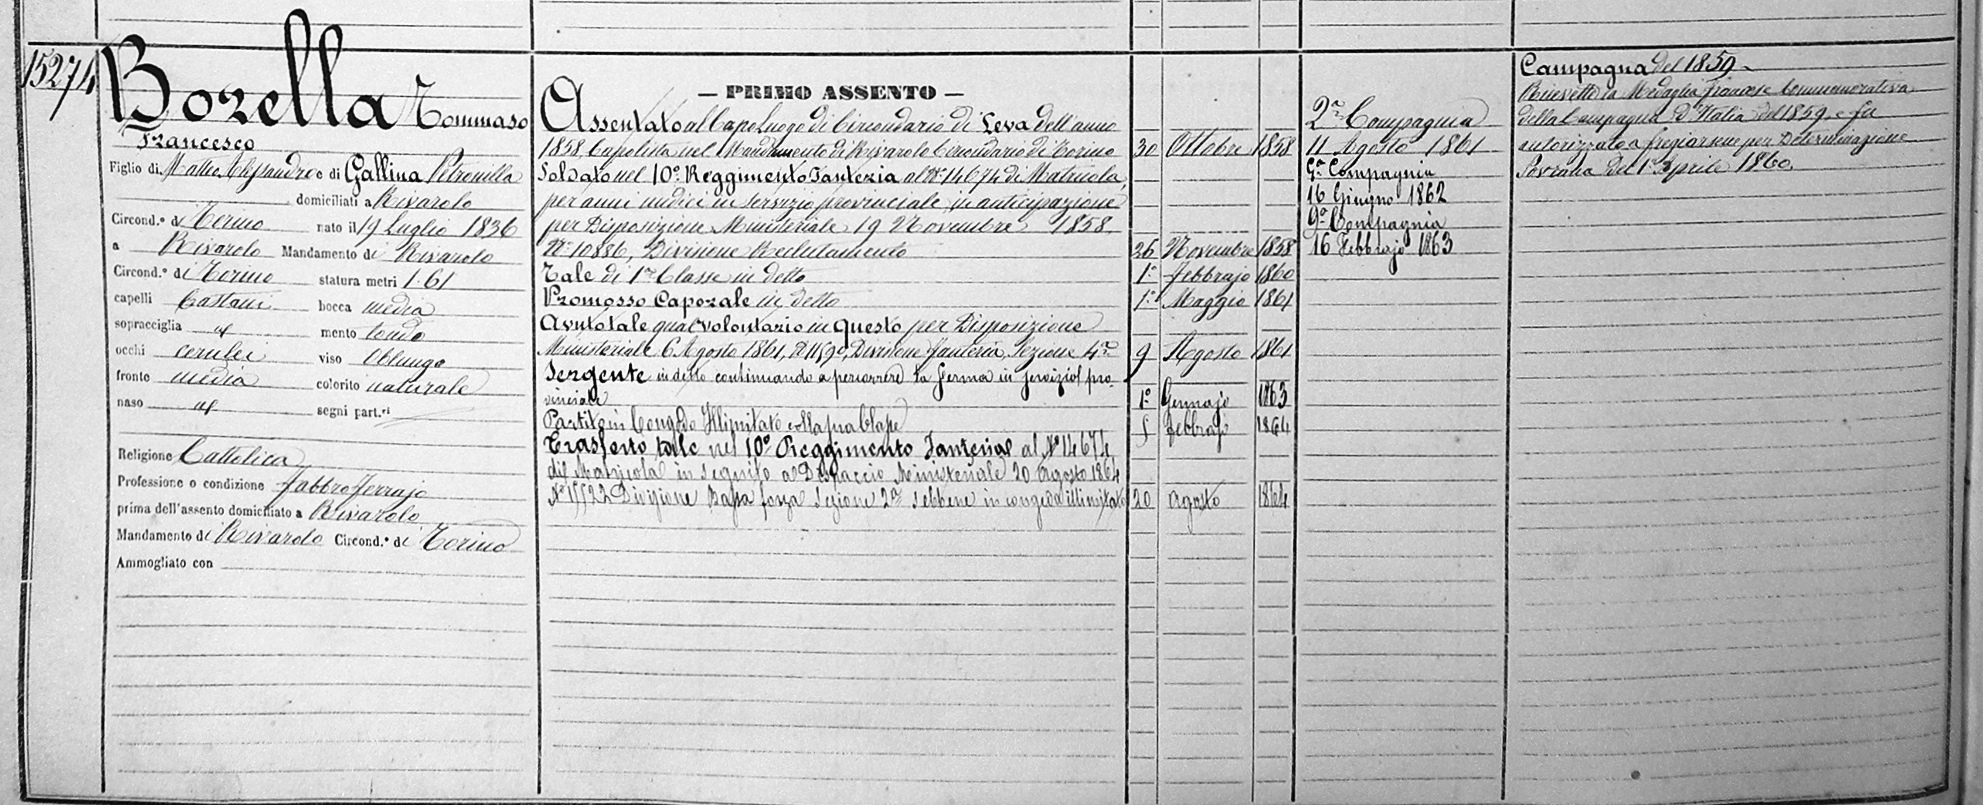 15274
Borella Tommaso
Francesco
Figlio di Matteo Alessandro e di Gallina Petronilla
domiciliati a Rivarolo
Circond.º di Torino nato il 19 Luglio 1836
a Rivarolo Mandamento di Rivarolo
Circond.º di Torino statura metri 1.61
capelli Castani bocca media
sopracciglia id mento tondo
occhi cerulei viso Oblungo
fronte media colorito naturale
naso id segni part.ri
Religione Cattolica
Professione o condizione Fabbro ferrajo
prima dell'assento domiciliato a Rivarolo
Mandamento di Rivarolo Circond.º di Torino
Ammogliato con
— PRIMO ASSENTO —
Assentato al Capoluogo di Circondario di Leva dell'anno
1858, Capolista nel Mandamento di Rivarolo Circondario di Torino 30 Ottobre 1858
Soldato nel 10º Reggimento Fanteria al Nº 14674 di Matricola,
per anni undici in servizio provinciale, in anticipazione
per Disposizione Ministeriale 19 Novembre 1858
Nº 10886, Divisione Reclutamento 26 Novembre 1858
Tale di 1ª Classe in detto 1º Febbrajo 1860
Promosso Caporale in detto 1º Maggio 1861
Avuto tale qual volontario in questo per Disposizione
Ministeriale 6 Agosto 1861, Nº 1590, Divisione Fanteria, Sezione 4ª 9 Agosto 1861
Sergente in detto continuando a percorrere la ferma in servizio pro-
vinciale 1º Gennajo 1863
Partito in Congedo Illimitato colla sua Classe 5 febbrajo 1864
Trasferto tale nel 10º Reggimento Fanteria al Nº 14674
di Matricola in seguito a Dispaccio Ministeriale 20 Agosto 1864
Nº 15522 Divisione Bassa forza Sezione 2ª sebbene in congedo illimitato 20 agosto 1864
2ª Compagnia
11 Agosto 1861
Gª Compagnia
16 Giugno 1862
9ª Compagnia
16 Febbrajo 1863
Campagna del 1859
Ricevette la Medaglia francese Commemorativa
della Campagna d'Italia del 1859, e fu
autorizzato a fregiarsene per Determinazione
Sovrana del 1º Aprile 1860.